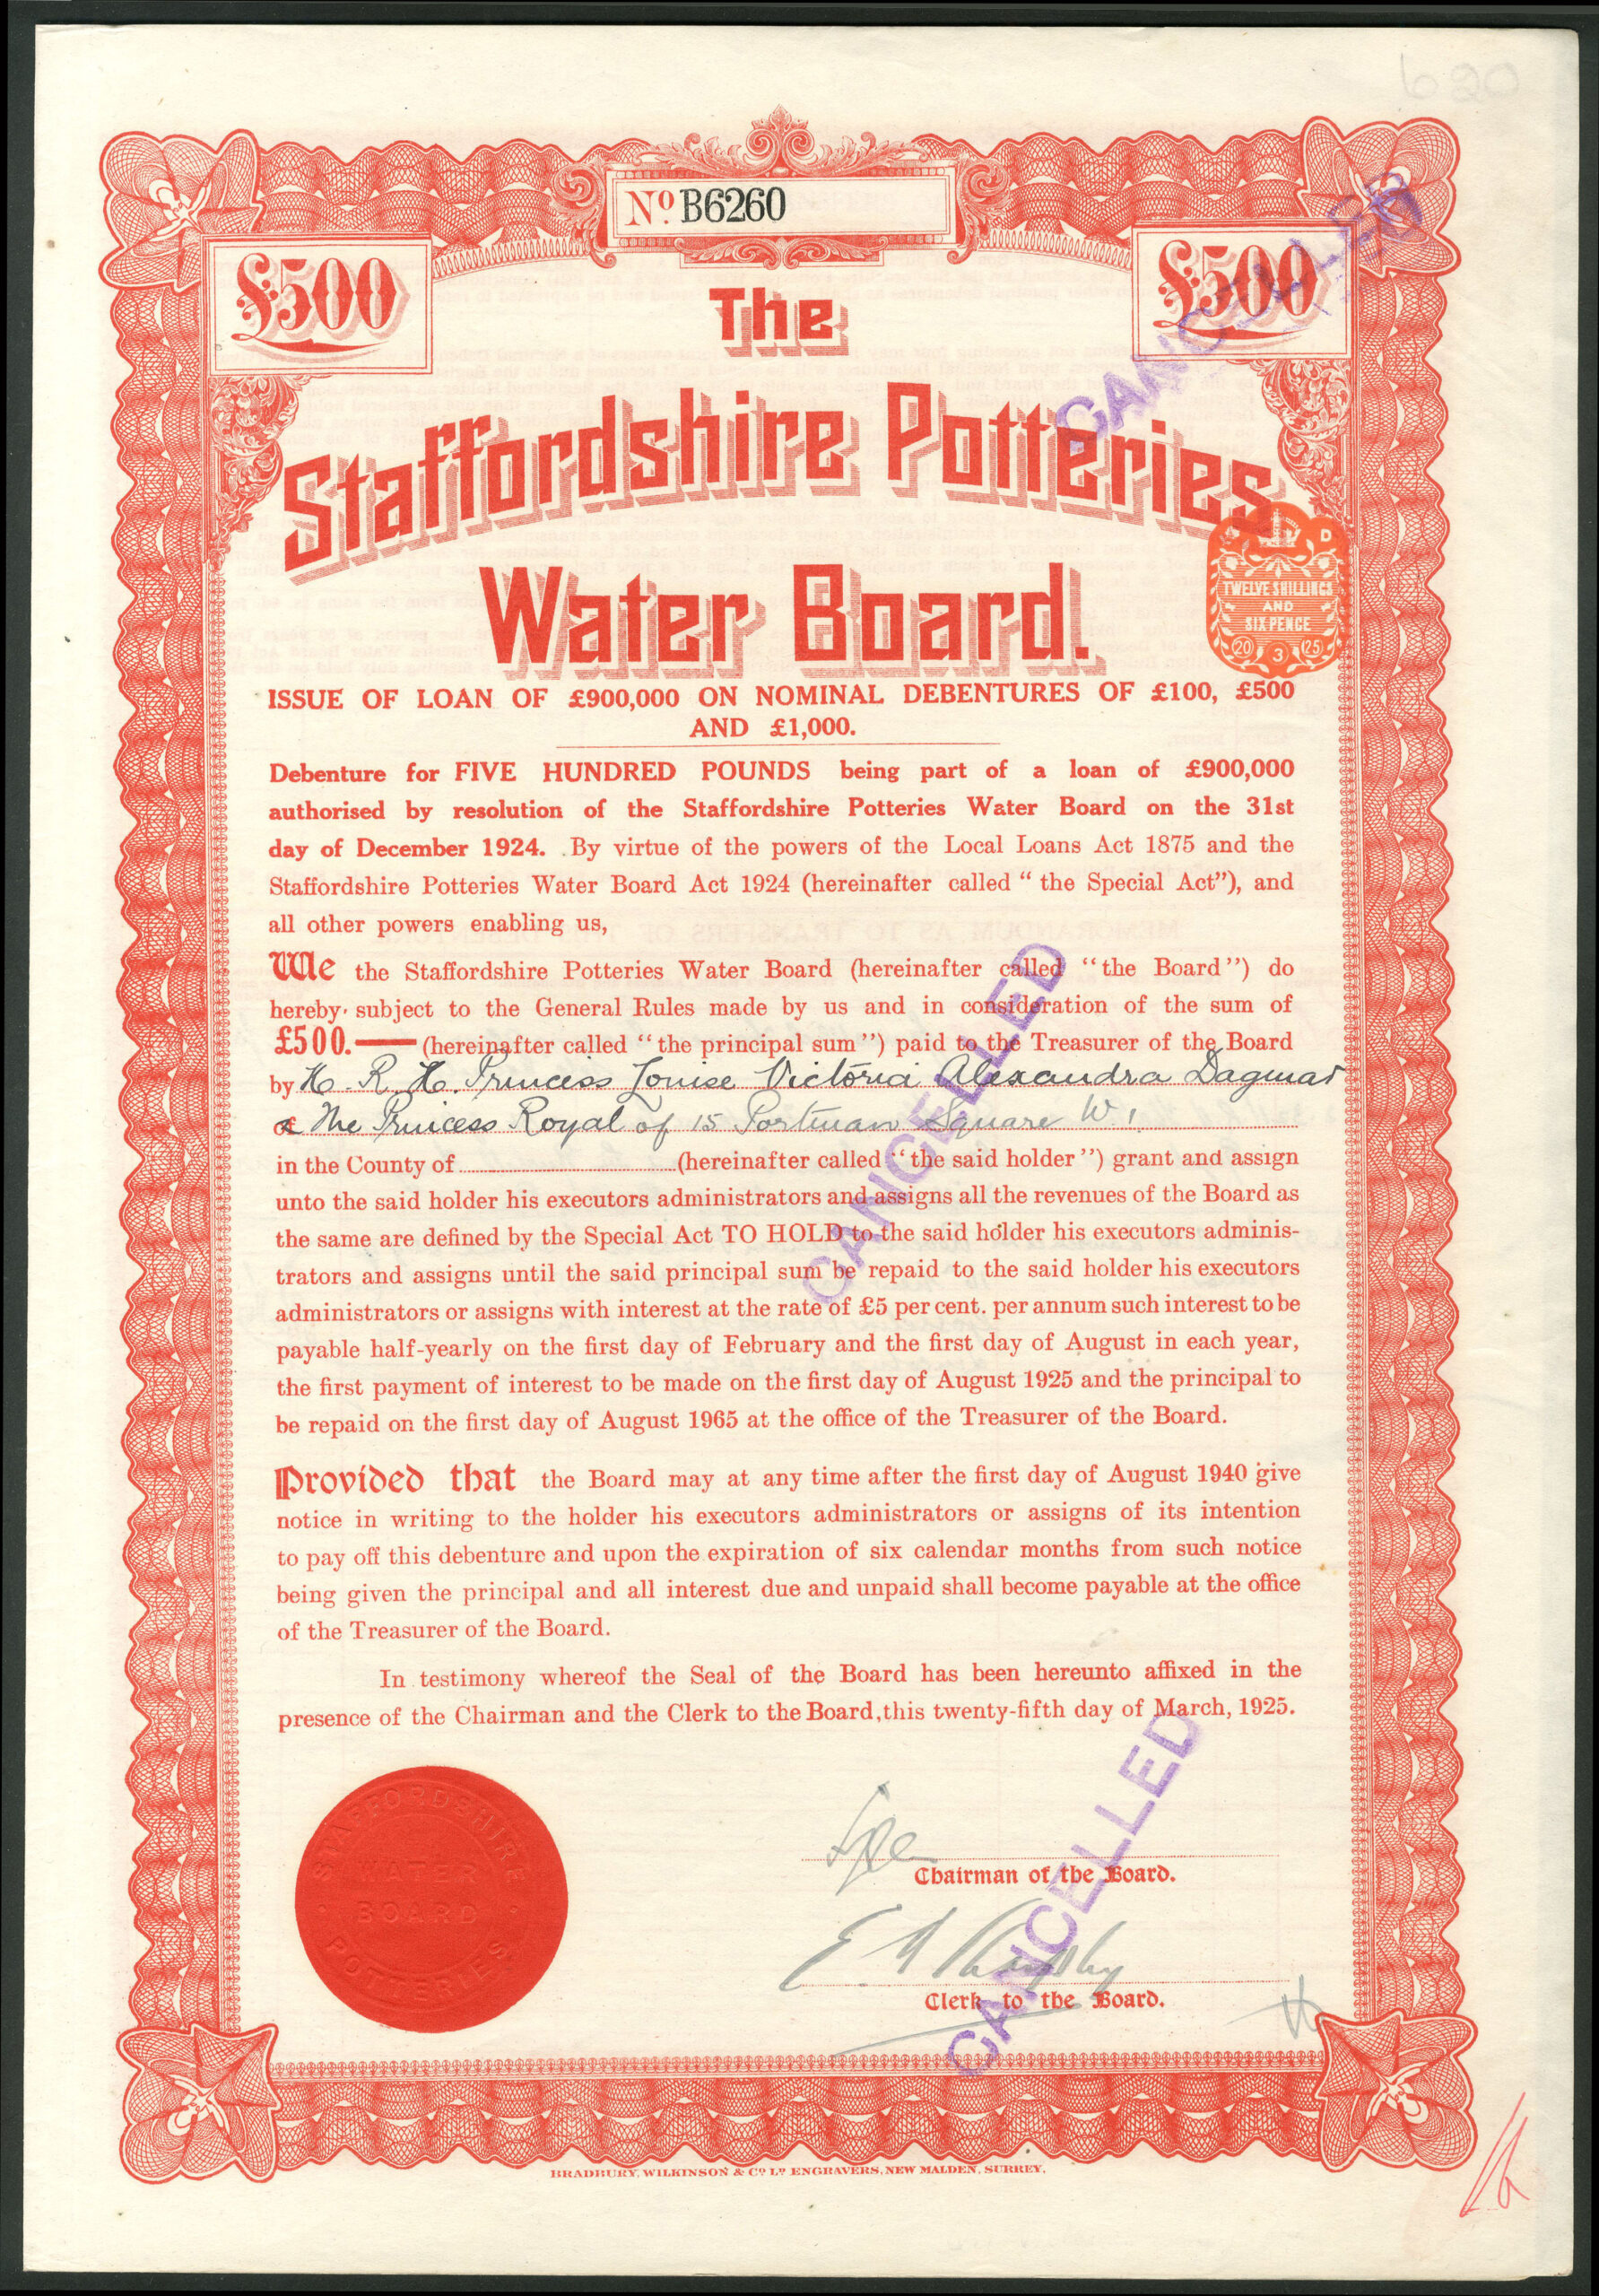 620
No B6260
£500
£500
The
Staffordshire Potteries
Water Board.
TWELVE SHILLINGS
AND
SIX PENCE
20 3 25
D
ISSUE OF LOAN OF £900,000 ON NOMINAL DEBENTURES OF £100, £500
AND £1,000.
Debenture for FIVE HUNDRED POUNDS being part of a loan of £900,000
authorised by resolution of the Staffordshire Potteries Water Board on the 31st
day of December 1924. By virtue of the powers of the Local Loans Act 1875 and the
Staffordshire Potteries Water Board Act 1924 (hereinafter called "the Special Act"), and
all other powers enabling us,
We the Staffordshire Potteries Water Board (hereinafter called "the Board") do
hereby subject to the General Rules made by us and in consideration of the sum of
£500.— (hereinafter called "the principal sum") paid to the Treasurer of the Board
by H. R. H. Princess Louise Victoria Alexandra Dagmar
of The Princess Royal of 15 Portman Square W.1.
in the County of (hereinafter called "the said holder") grant and assign
unto the said holder his executors administrators and assigns all the revenues of the Board as
the same are defined by the Special Act TO HOLD to the said holder his executors adminis-
trators and assigns until the said principal sum be repaid to the said holder his executors
administrators or assigns with interest at the rate of £5 per cent. per annum such interest to be
payable half-yearly on the first day of February and the first day of August in each year,
the first payment of interest to be made on the first day of August 1925 and the principal to
be repaid on the first day of August 1965 at the office of the Treasurer of the Board.
Provided that the Board may at any time after the first day of August 1940 give
notice in writing to the holder his executors administrators or assigns of its intention
to pay off this debenture and upon the expiration of six calendar months from such notice
being given the principal and all interest due and unpaid shall become payable at the office
of the Treasurer of the Board.
In testimony whereof the Seal of the Board has been hereunto affixed in the
presence of the Chairman and the Clerk to the Board, this twenty-fifth day of March, 1925.
CANCELLED
CANCELLED
CANCELLED
STAFFORDSHIRE
WATER
BOARD
POTTERIES
Chairman of the Board.
Clerk to the Board.
BRADBURY, WILKINSON & Co. Ld. ENGRAVERS, NEW MALDEN, SURREY.